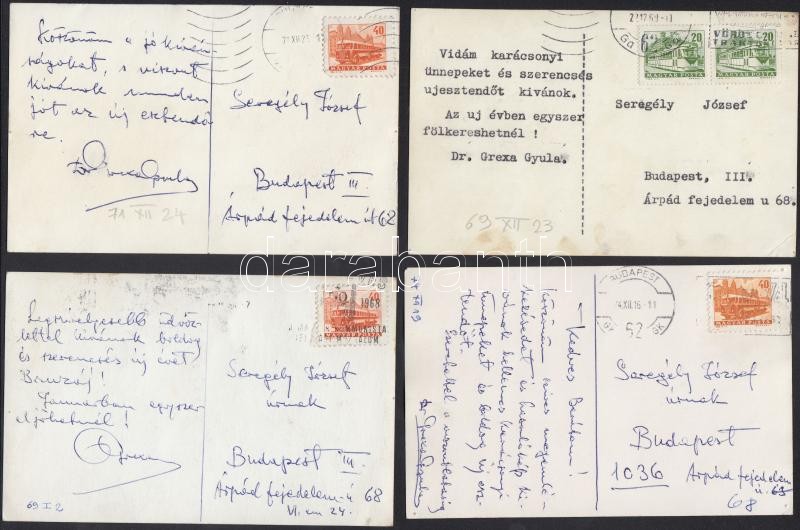 Köszönöm a jókíván-
ságokat, s viszont
kívánok minden
jót az új esztendő-
re.
Dr Grexa Gyula
71 XII 24
40
MAGYAR POSTA
Seregély József
Budapest III.
Árpád fejedelem út 62
Vidám karácsonyi
ünnepeket és szerencsés
ujesztendőt kivánok.
Az uj évben egyszer
fölkereshetnél !
Dr. Grexa Gyula.
69 XII 23
20 20
MAGYAR POSTA MAGYAR POSTA
Seregély József
Budapest, III.
Árpád fejedelem u 68.
darabanth
Legmélyesebb üdvöz-
lettel kívánok boldog
és szerencsés új évet
Januárban egyszer
eljöhetnél!
Grexa
69 I 2
1968
40
Seregély József
úrnak
Budapest III.
Árpád fejedelem u 68
VI. em 24.
74 XII 19
Kedves Barátom!
Köszönöm
kellemes karácsonyi
ünnepeket és boldog új esz-
tendőt.
Szeretettel
Dr Grexa Gyula
BUDAPEST
74.XII.16-11
52
40
MAGYAR POSTA
Seregély József
úrnak
Budapest
1036 Árpád fejedelem
u. 65
68